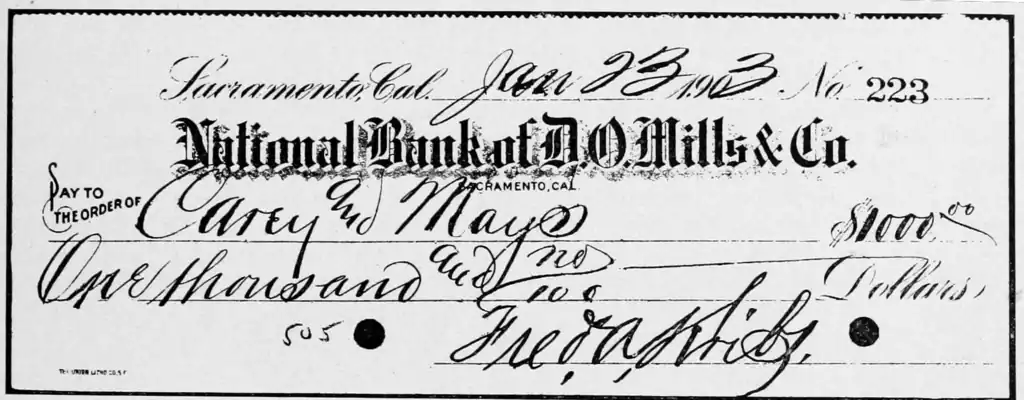 Sacramento, Cal. Jan 23 1903 No. 223
National Bank of D.O. Mills & Co.
SACRAMENTO, CAL.
PAY TO THE ORDER OF Carey and Mays $1000.00
One thousand and no/100 Dollars
505
Fred A. Kribs.